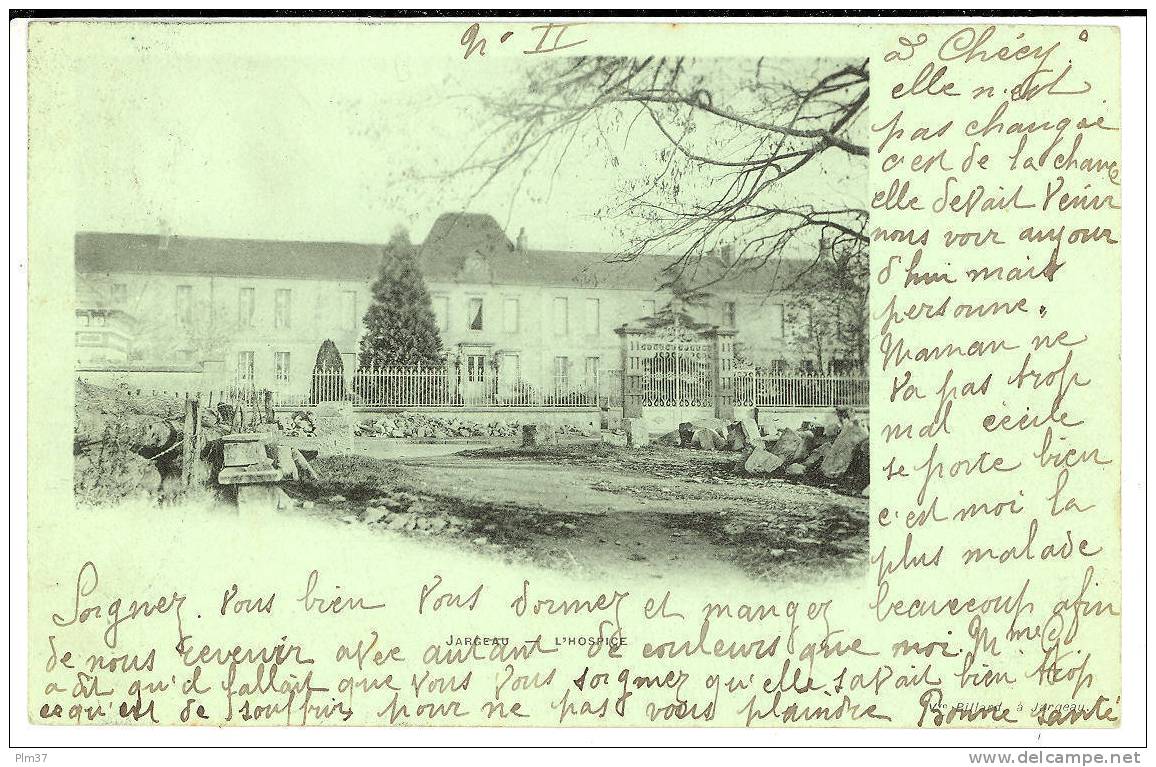 N° II
à Chécy
elle n'est
pas changée
c'est de la chance
elle devait venir
nous voir aujour
d'hui mais
personne.
Maman ne
va pas trop
mal cécile
se porte bien
c'est moi la
plus malade
Soignez vous bien vous dormez et mangez beaucoup afin
de nous revenir avec autant de couleurs que moi. Mme G.
a dit qu'il fallait que vous vous soignez qu'elle savait bien trop
cequ'est de souffrir pour ne pas vous plaindre Bonne santé
JARGEAU — L'HOSPICE
Vve Billard, à Jargeau.
Plm37
www.delcampe.net